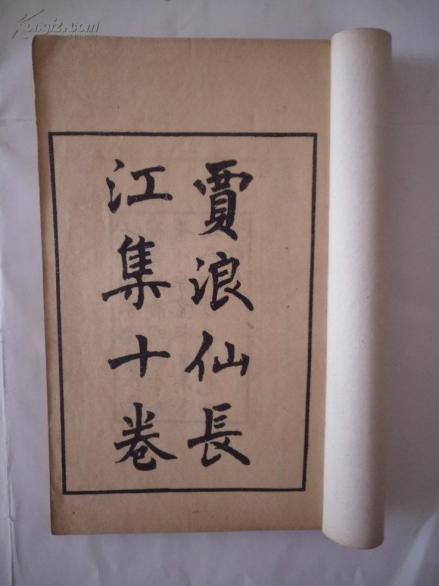 賈浪仙長
江集十卷
kongfz.com